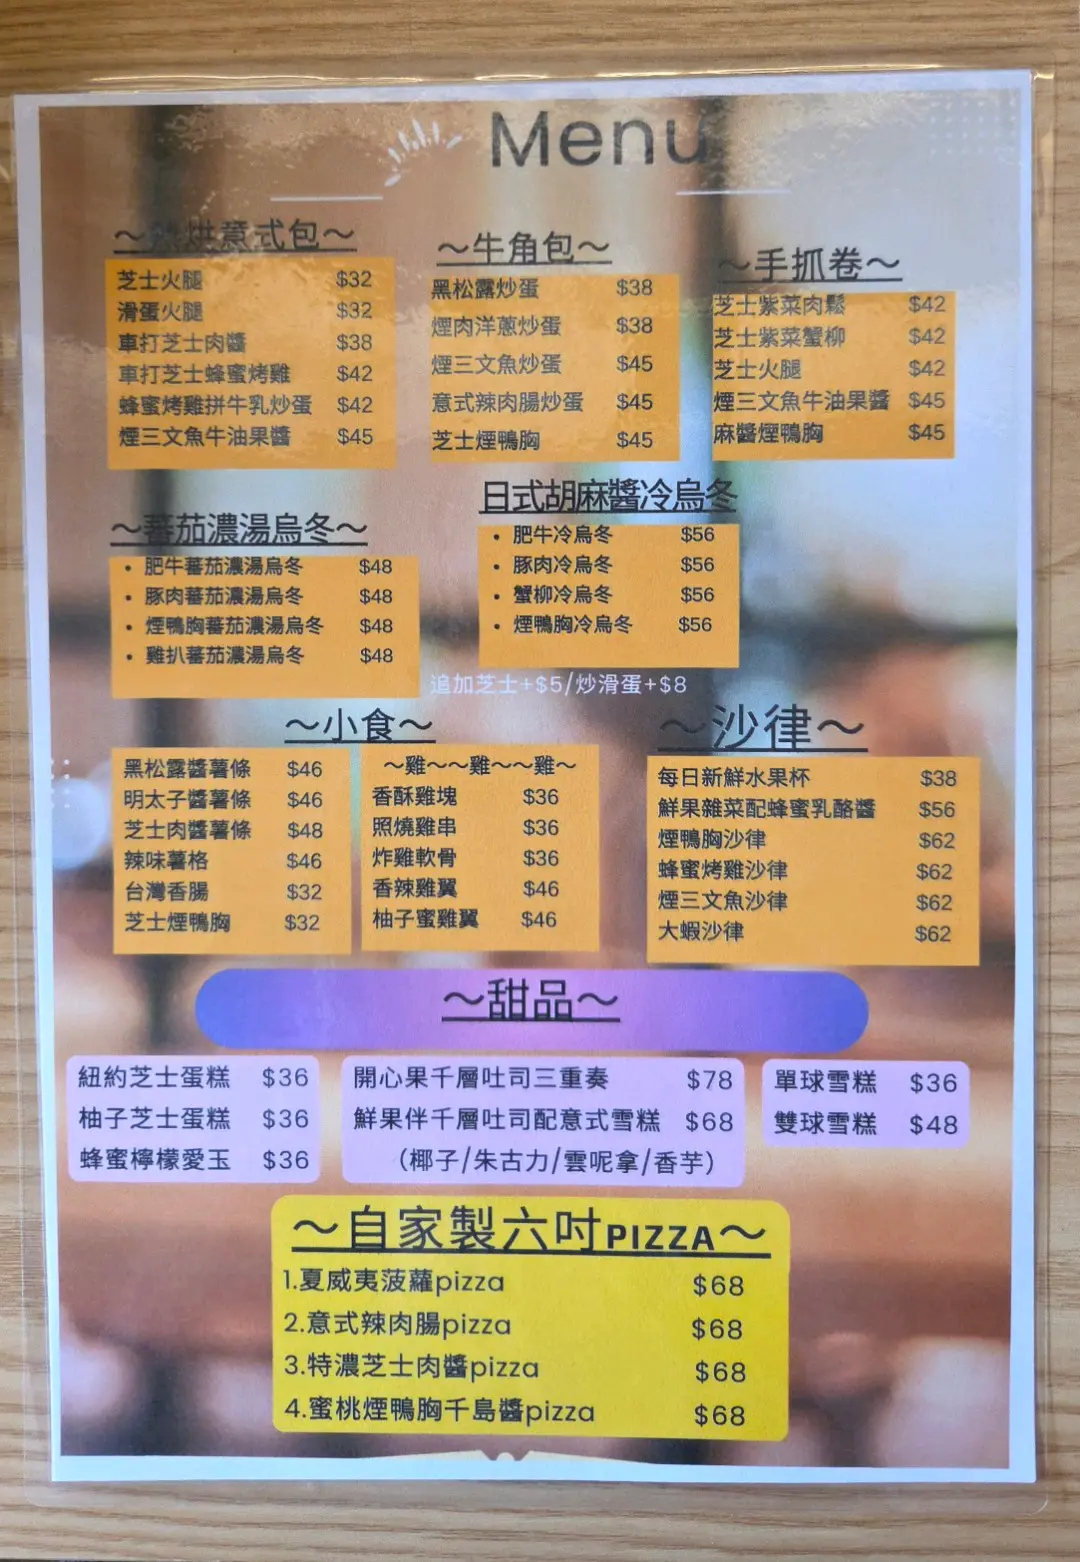 Menu
～烘意式包～
芝士火腿 $32
滑蛋火腿 $32
車打芝士肉醬 $38
車打芝士蜂蜜烤雞 $42
蜂蜜烤雞拼牛乳炒蛋 $42
煙三文魚牛油果醬 $45
～牛角包～
黑松露炒蛋 $38
煙肉洋蔥炒蛋 $38
煙三文魚炒蛋 $45
意式辣肉腸炒蛋 $45
芝士煙鴨胸 $45
～手抓卷～
芝士紫菜肉鬆 $42
芝士紫菜蟹柳 $42
芝士火腿 $42
煙三文魚牛油果醬 $45
麻醬煙鴨胸 $45
～蕃茄濃湯烏冬～
• 肥牛蕃茄濃湯烏冬 $48
• 豚肉蕃茄濃湯烏冬 $48
• 煙鴨胸蕃茄濃湯烏冬 $48
• 雞扒蕃茄濃湯烏冬 $48
日式胡麻醬冷烏冬
• 肥牛冷烏冬 $56
• 豚肉冷烏冬 $56
• 蟹柳冷烏冬 $56
• 煙鴨胸冷烏冬 $56
追加芝士+$5/炒滑蛋+$8
～小食～
黑松露醬薯條 $46
明太子醬薯條 $46
芝士肉醬薯條 $48
辣味薯格 $46
台灣香腸 $32
芝士煙鴨胸 $32
～雞～～雞～～雞～
香酥雞塊 $36
照燒雞串 $36
炸雞軟骨 $36
香辣雞翼 $46
柚子蜜雞翼 $46
～沙律～
每日新鮮水果杯 $38
鮮果雜菜配蜂蜜乳酪醬 $56
煙鴨胸沙律 $62
蜂蜜烤雞沙律 $62
煙三文魚沙律 $62
大蝦沙律 $62
～甜品～
紐約芝士蛋糕 $36
柚子芝士蛋糕 $36
蜂蜜檸檬愛玉 $36
開心果千層吐司三重奏 $78
鮮果伴千層吐司配意式雪糕 $68
（椰子/朱古力/雲呢拿/香芋）
單球雪糕 $36
雙球雪糕 $48
～自家製六吋PIZZA～
1.夏威夷菠蘿pizza $68
2.意式辣肉腸pizza $68
3.特濃芝士肉醬pizza $68
4.蜜桃煙鴨胸千島醬pizza $68